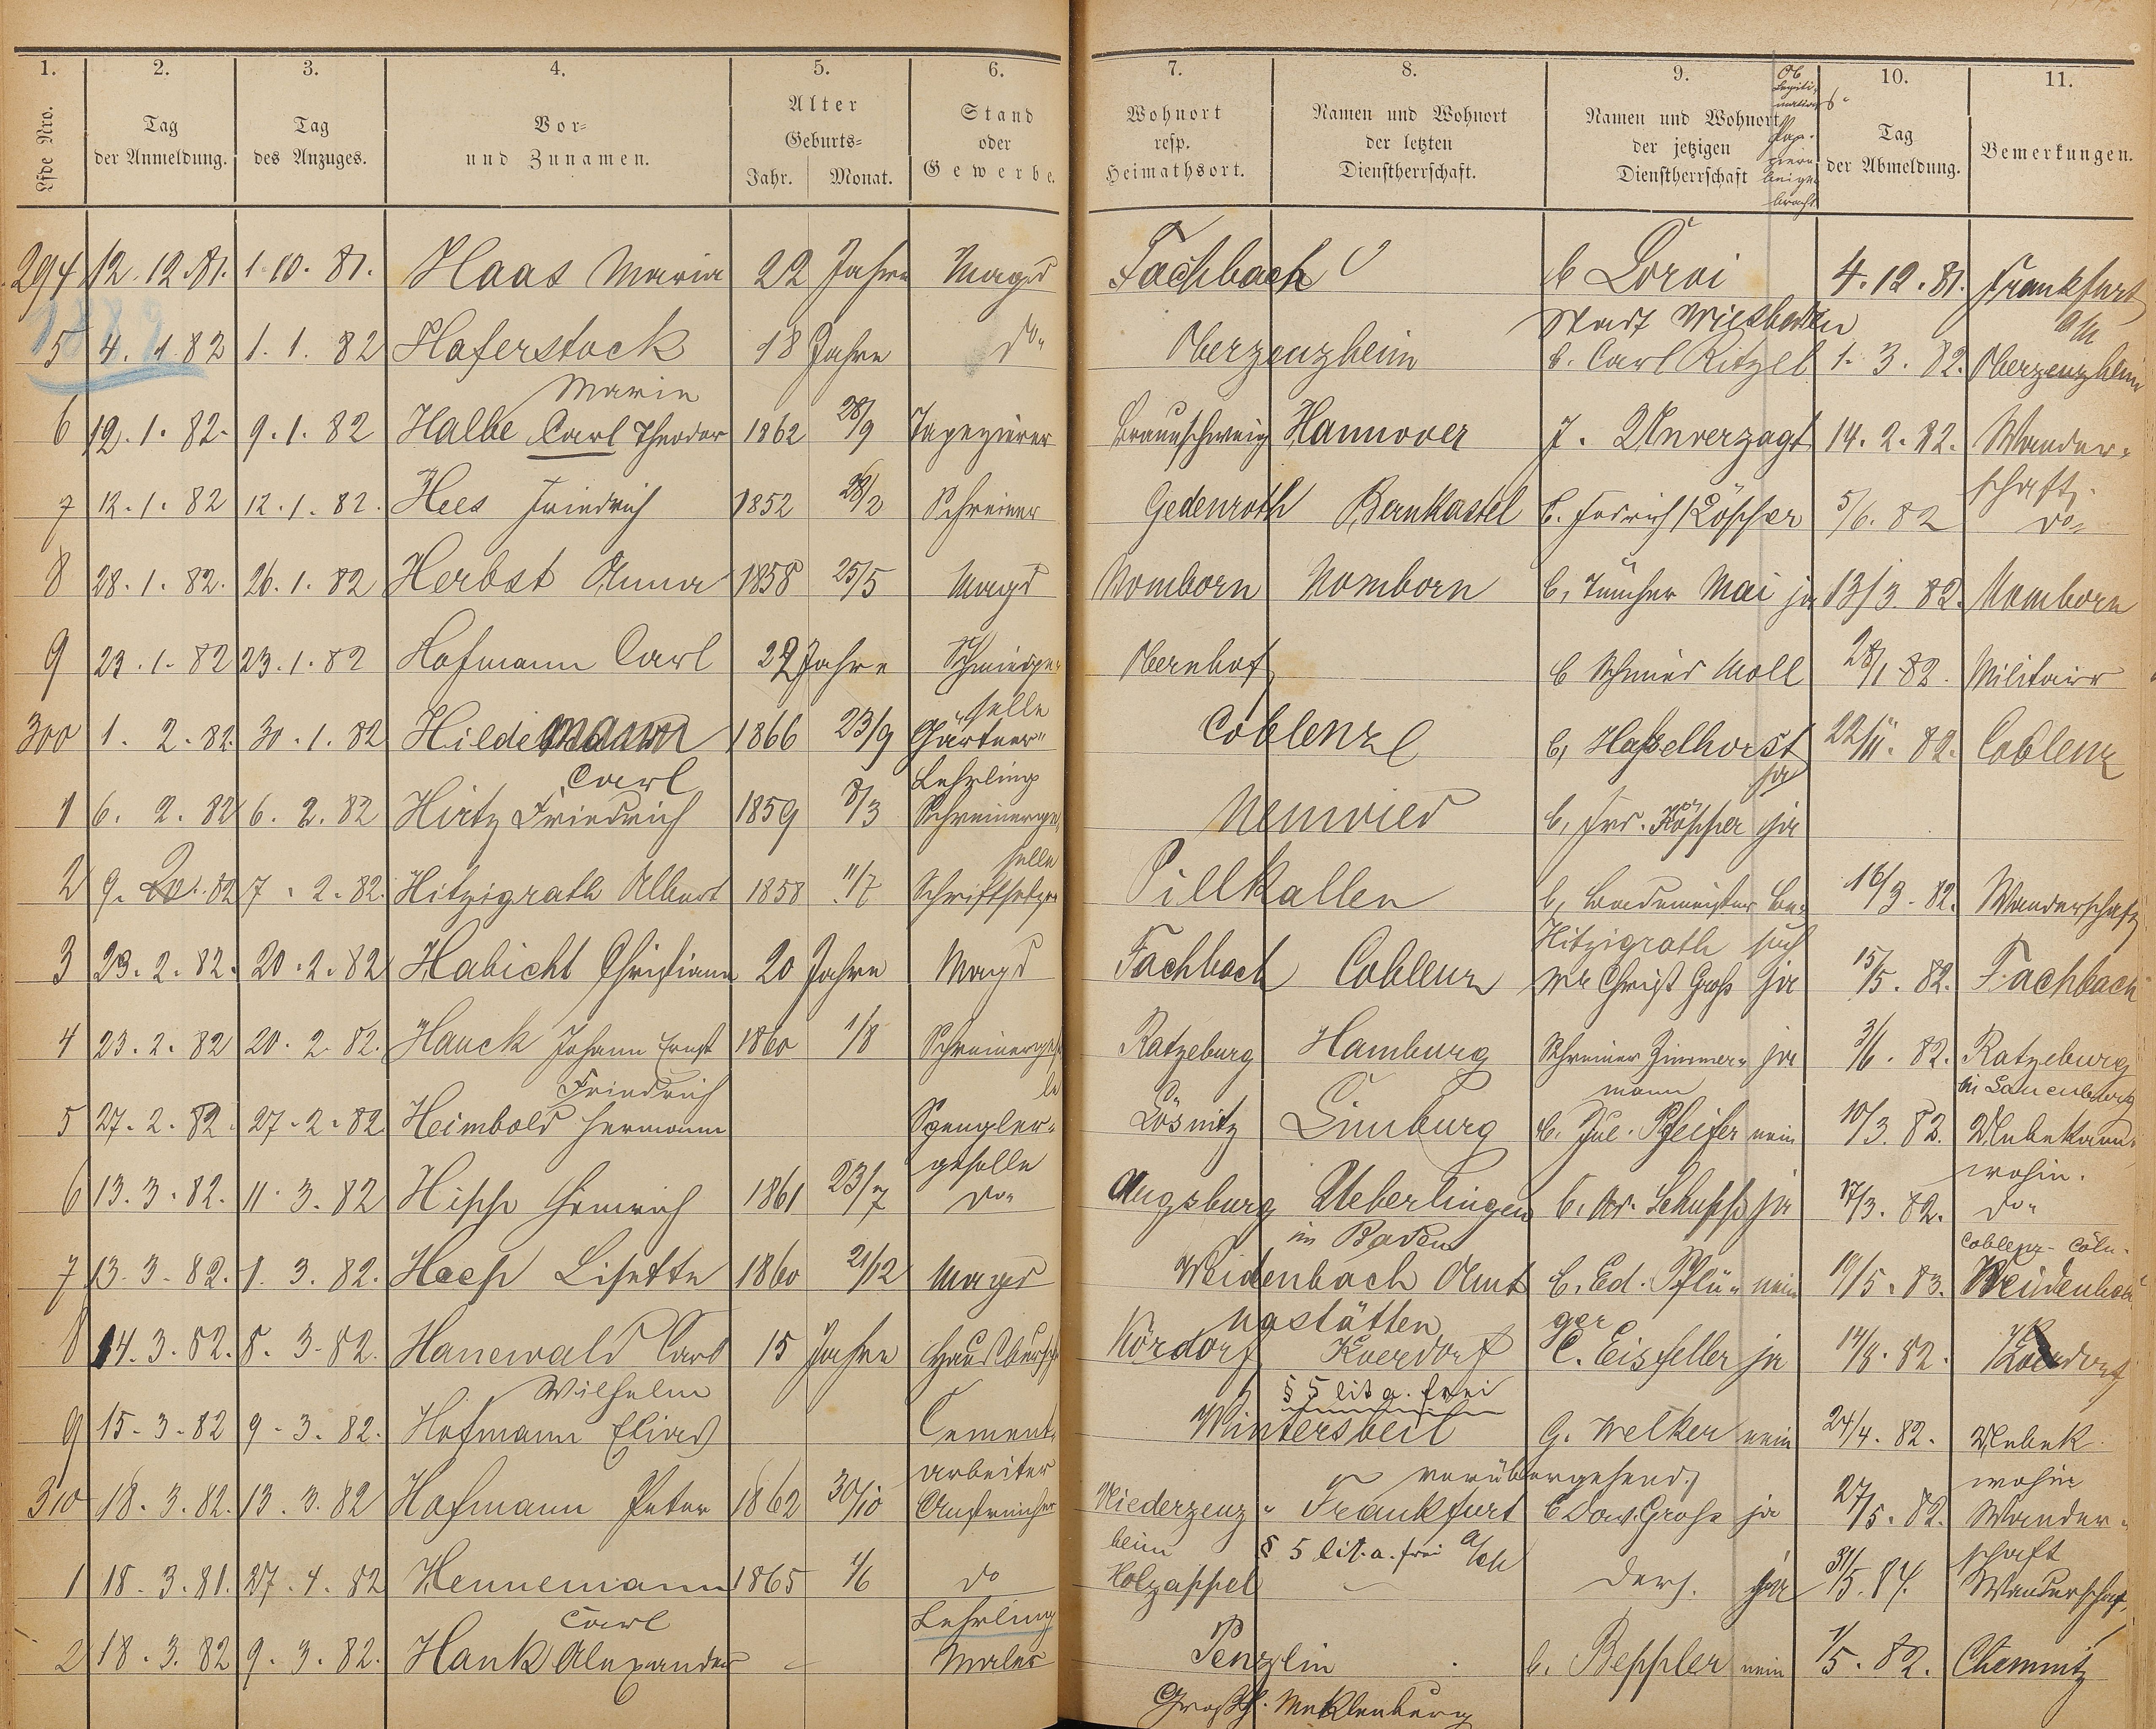 1. 2. 3. 4. 5. 6. 7. 8. 9. 10. 11.
Lfde Nro.
Tag der Anmeldung.
Tag des Anzuges.
Vor- und Zunamen.
Alter
Geburts-
Jahr. Monat.
Stand oder Gewerbe.
Wohnort resp. Heimathsort.
Namen und Wohnort der letzten Dienstherrschaft.
Namen und Wohnort der jetzigen Dienstherrschaft
Ob Legitimations-Papiere beigebracht
Tag der Abmeldung.
Bemerkungen.
294 12.12.81. 1.10.81. Haas Maria 22 Jahre Magd Fachbach b 4.12.81. Frankfurt a/M
1882
5 4.1.82 1.1.82 Haferstock Marie 18 Jahre do Oberzeuzheim Stadt Wiesbaden b. Carl Ritzel 1.3.82. Oberzeuzheim
6 12.1.82. 9.1.82 Halbe Carl Theodor 1862 28/9 Tapezierer Braunschweig Hannover J. Unverzagt 14.2.82. Wanderschaft.
7 12.1.82 12.1.82. Hees Friedrich 1852 28/2 Schreiner Gedenroth Bernkastel b. Löscher 5/6.82 do
8 28.1.82. 26.1.82 Herbst Anna 1858 25/5 Magd Nomborn Nomborn b. Tüncher Mai ja 13/3.82. Nomborn
9 23.1.82 23.1.82 Hofmann Carl 22 Jahre Schmiedgeselle Obernhof b Schmied Moll 28/1.82. Militair
300 1.2.82. 30.1.82 Hildemann Carl 1866 23/9 Gärtner Lehrling Coblenz b. Haßelhorst ja 22/11.82. Coblenz
1 6.2.82 6.2.82 Hirtz Friedrich 1859 8/3 Schreinergeselle Neuwied b. Frd. ja
2 9.2.82 7.2.82. Hitzigrath Albert 1858 11/7 Schriftsetzer Pillkallen b. Bademeister Hitzigrath 16/3.82. Wanderschaft
3 23.2.82. 20.2.82 Habicht Christiane 20 Jahre Magd Fachbach Coblenz Christ Groß ja 15/5.82. Fachbach
4 23.2.82 20.2.82. Hauck Johann Ernst Friedrich 1860 1/8 Schreinergeselle Ratzeburg Hamburg Schreiner Zimmermann ja 3/6.82. Ratzeburg bei Lauenburg
5 27.2.82. 27.2.82 Heimbold Hermann Spenglergeselle Lösnitz Limburg b. Jul. Pfeifer nein 10/3.82. Unbekannt wohin.
6 13.3.82. 11.3.82 Heinrich 1861 23/7 do Augsburg Ueberlingen in Baden b. Schupp ja 17/3.82. do Coblenz-Cöln.
7 13.3.82. 1.3.82. Heep Lisette 1860 21/12 Magd Weidenbach Amt Nastätten b. Ed. Pflüger nein 19/5.83. Weidenbach
8 14.3.82. 8.3.82. Hanewald Carl Wilhelm 15 Jahre Hausbursche Kördorf Koerdorf C. Eisfeller ja 14/8.82. Koerdorf
§ 5 lit a. frei
9 15.3.82 9.3.82. Hofmann Elias Cementarbeiter Wintersbeil G. Melker nein 24/4.82. Unbek. wohin
vorübergehend
310 18.3.82. 13.3.82 Hofmann Peter 1862 30/10 Anstreicher Niederzeuzheim Frankfurt a/M b Dav. Groß ja 27/5.82. Wanderschaft
§ 5 lit. a. frei
1 18.3.81. 27.4.82 Hennemann Carl 1865 1/6 do Lehrling Holzappel ders. ja 31/5.84. Wanderschaft
2 18.3.82 9.3.82. Hank Alexander Maler Penzlin Großh. Meklenburg b. Beppler nein 1/5.82. Chemnitz